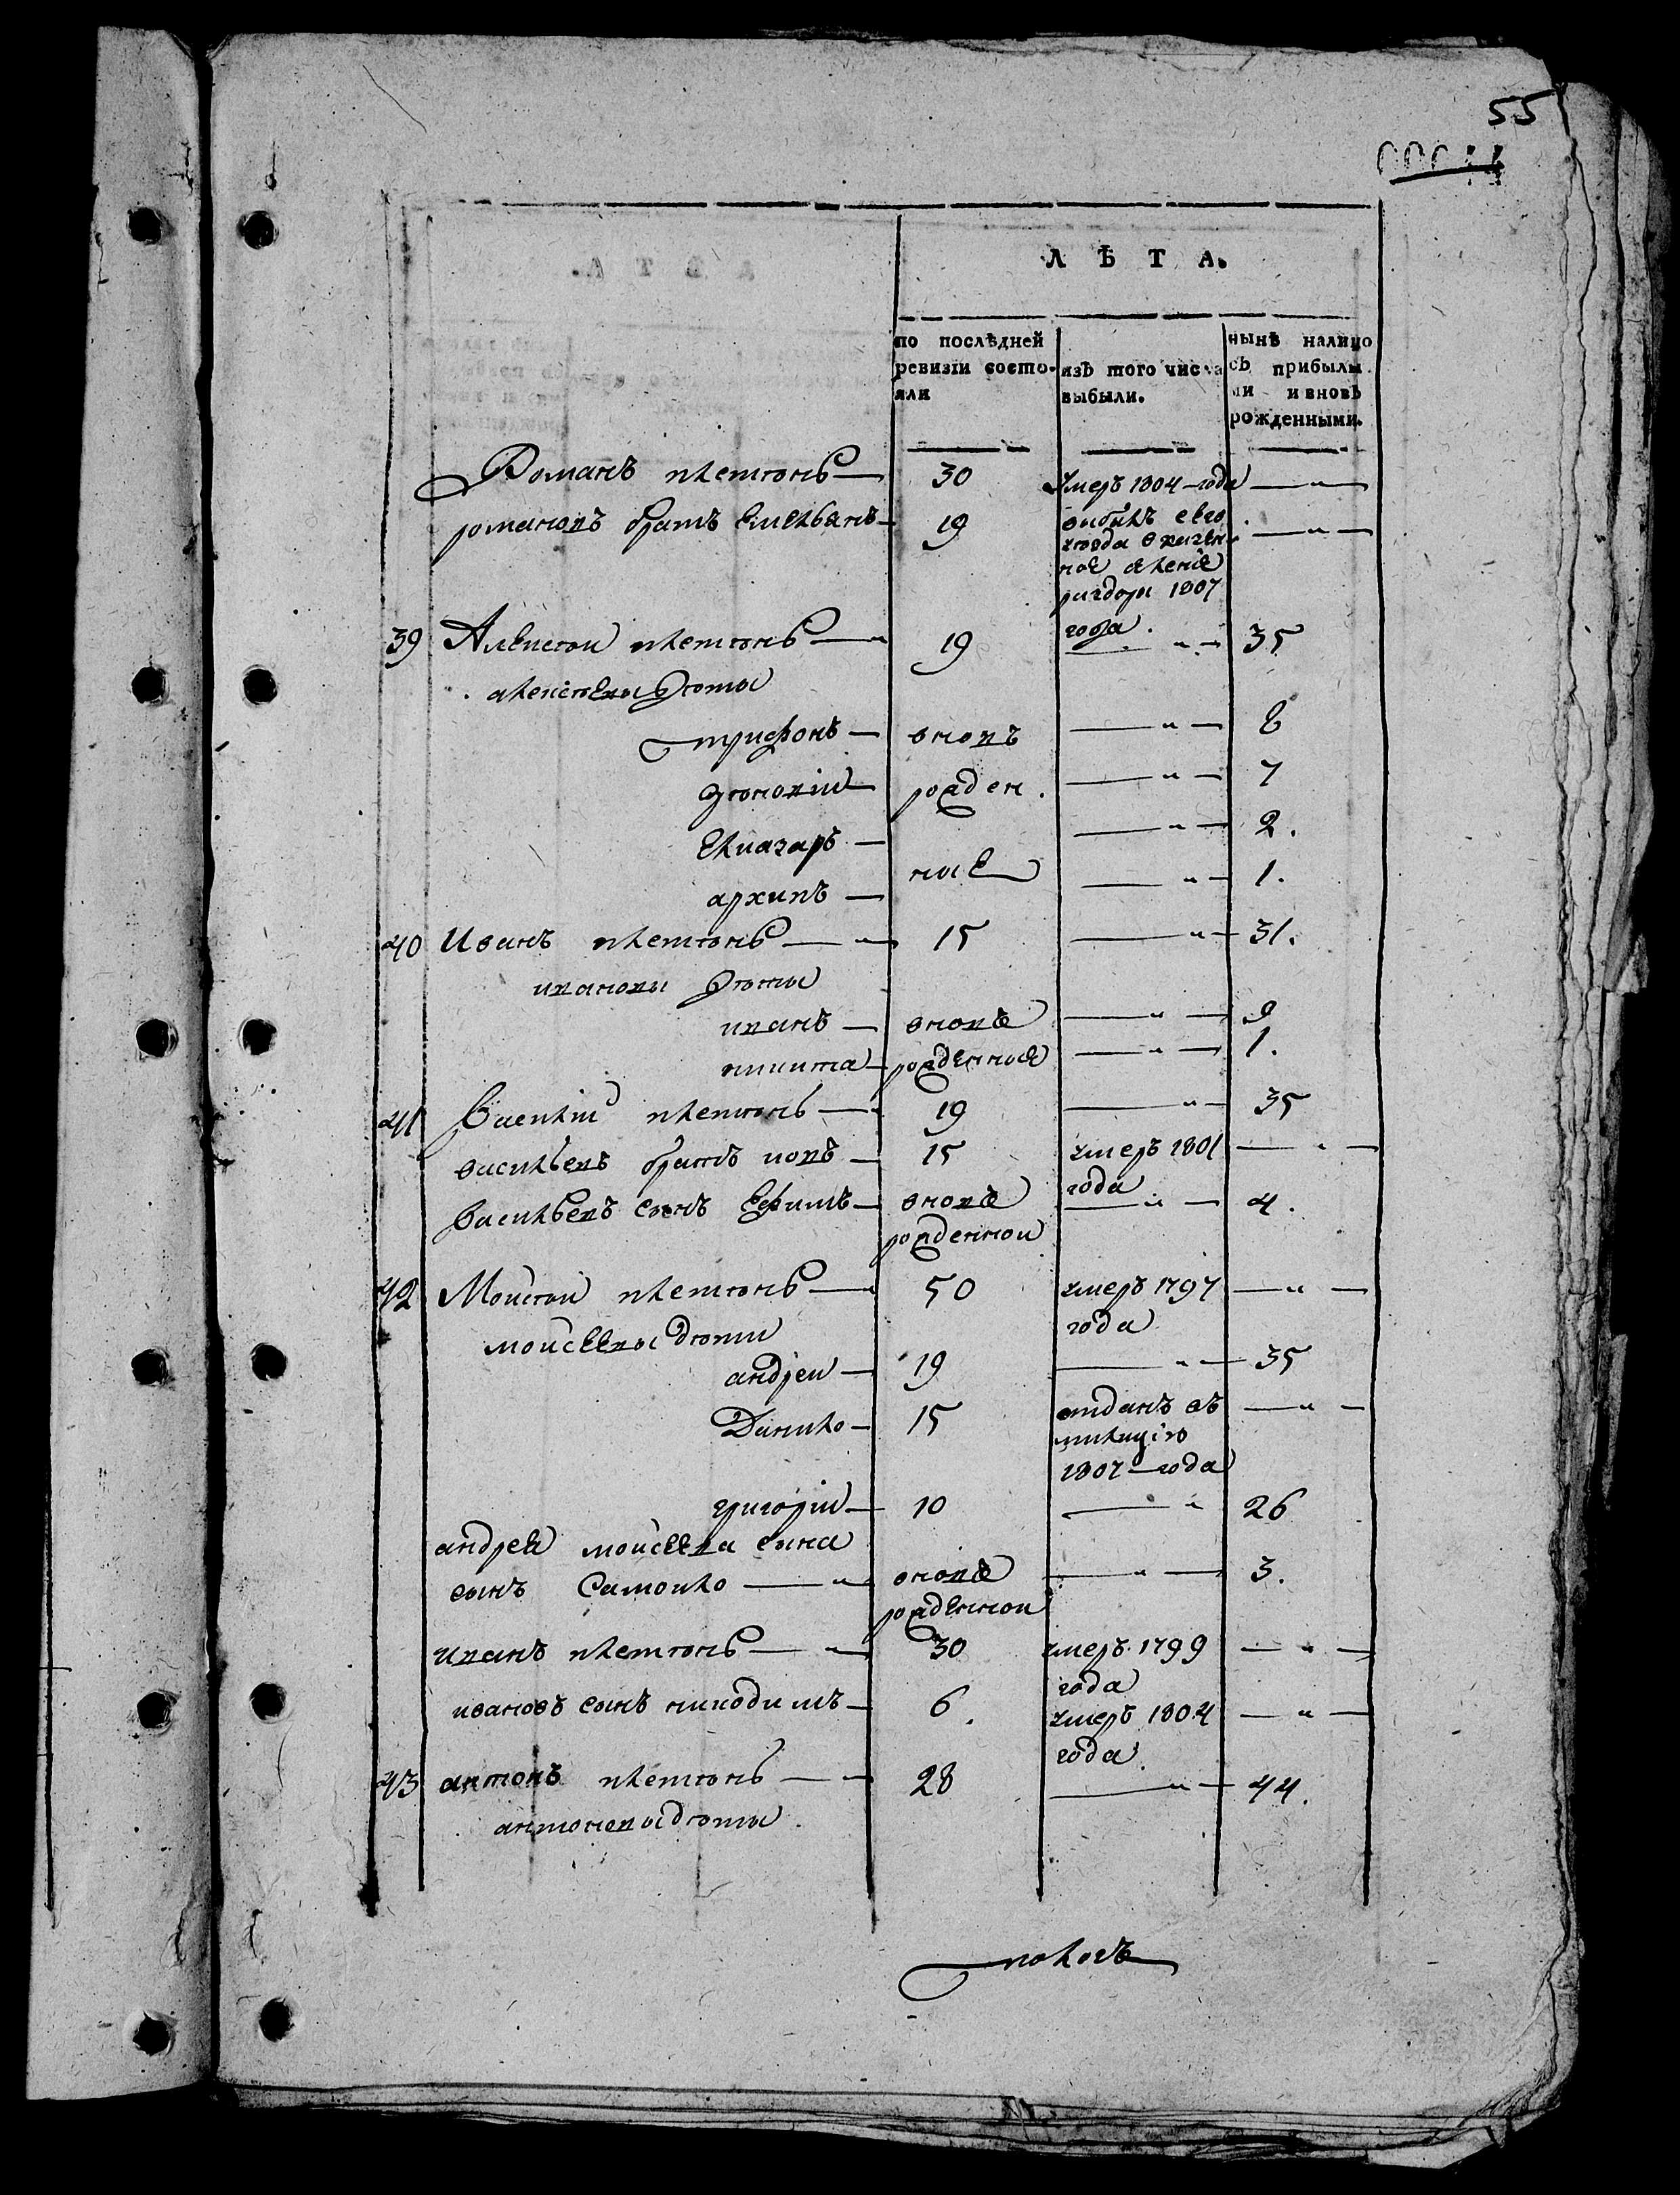 55
Л Ѣ Т А.
по послѣдней ревизіи состо-яли
изъ того числа выбыли.
нынѣ налицо съ прибылы ми и вновь рожденными.
Романъ плетюнь 30 умеръ 1804 года
романовъ братъ Емельянъ 19
1807
года.
39 Алексѣи плетюнь 19 35
алексѣевы дѣти
трифонъ вновъ 8
рожден 7
Елиазаръ 2.
ные
архипъ 1.
40 Иванъ плетюнь 15 31.
ивановы дѣти
иванъ вновѣ 9
никита рожденные 1.
41 Василіи плетюнь 19 35
васильевъ братъ иовъ 15 умеръ 1801
года
васильевъ сынъ Ефимъ вновѣ 4.
рожденнои
42 Моисѣи плетюнь 50 умеръ 1797
года
моисѣевы дѣти
андреи 19 35
Данило 15 отданъ въ
милицію
1807 года
григоріи 10 26
андрея моисѣева сына
сынъ Самоило вновѣ 3.
рожденнои
иванъ плетюнь 30 умеръ 1799
года
ивановъ сынъ никодимъ 6. умеръ 1804
года
43 антонъ плетюнь 28 44.
антоновы дѣти